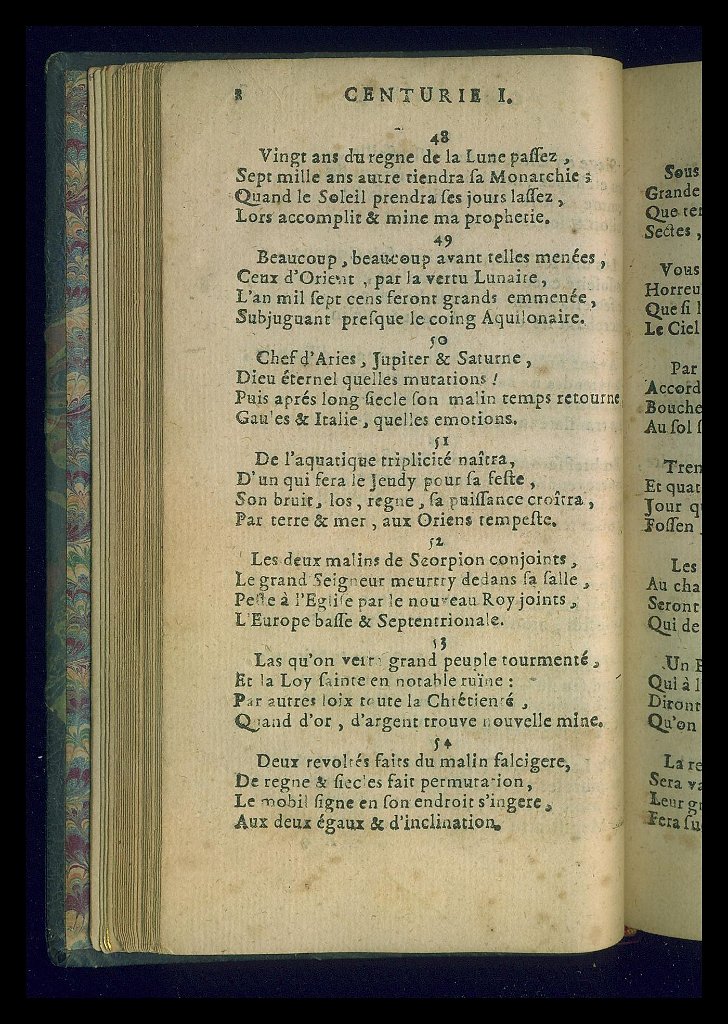 8 CENTURIE I.
48
Vingt ans du regne de la Lune paſſez ,
Sept mille ans autre tiendra ſa Monarchie ;
Quand le Soleil prendra ſes jours laſſez ,
Lors accomplit & mine ma prophetie.
49
Beaucoup , beaucoup avant telles menées ,
Ceux d'Orient , par la vertu Lunaire ,
L'an mil ſept cens feront grands emmenée ,
Subjuguant preſque le coing Aquilonaire.
50
Chef d'Aries , Jupiter & Saturne ,
Dieu éternel quelles mutations !
Puis aprés long ſiecle ſon malin temps retourne
Gaules & Italie , quelles emotions.
51
De l'aquatique triplicité naîtra,
D'un qui fera le Jeudy pour ſa feſte ,
Son bruit, los , regne , ſa puiſſance croîtra ,
Par terre & mer , aux Oriens tempeſte.
52
Les deux malins de Scorpion conjoints ,
Le grand Seigneur meurtry dedans ſa ſalle ,
Peſte à l'Egliſe par le nouveau Roy joints ,
L'Europe baſſe & Septentrionale.
53
Las qu'on verra grand peuple tourmenté ,
Et la Loy ſainte en notable ruïne :
Par autres loix toute la Chrétienté ,
Quand d'or , d'argent trouve nouvelle mine.
54
Deux revoltés faits du malin falcigere,
De regne & ſiecles fait permutation,
Le mobil ſigne en ſon endroit s'ingere ,
Aux deux égaux & d'inclination.
Sous
Grande
Que
Sectes ,
Vous
Horreu
Que ſi l
Le Ciel
Par
Accord
Bouche
Au ſol ſ
Tren
Et quat
Jour q
Foſſen
Les
Au cha
Seront
Qui de
Un E
Qui à l
Diront
Qu'on
La re
Sera va
Leur g
Fera ſu